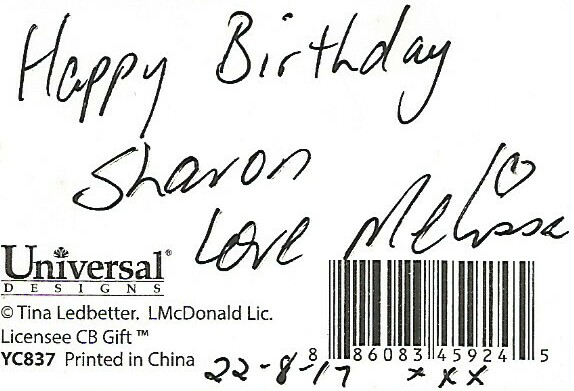 Happy Birthday
Sharon
Love Melissa
Universal®
DESIGNS
© Tina Ledbetter. LMcDonald Lic.
Licensee CB Gift ™
YC837 Printed in China
22-8-17 xxx
8 86083 45924 5